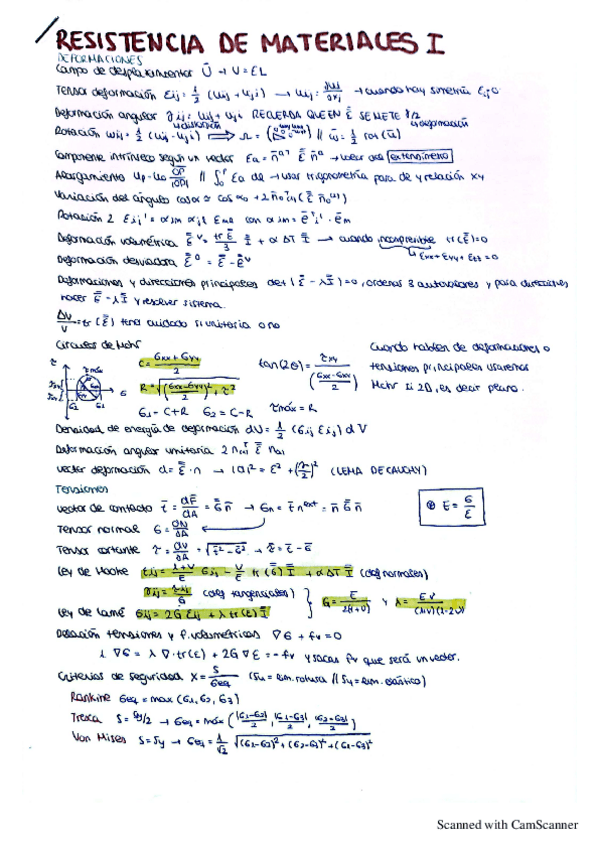 RESISTENCIA DE MATERIALES I
DEFORMACIONES
Campo de desplazamientos Ū → U = EL
Tensor deformación Eij = 1/2 (uij + uji) → uij = ∂ui/∂xj → cuando hay simetría Eij=0
Deformación angular γij = uij + uji RECUERDA QUE EN Ē SE METE γ/2
Rotación ωij = 1/2 (uij - uji) ⇒ Ω = // ω̄ = 1/2 rot (ū)
Componente intrínseca según un vector Ea = n̄ᵃᵀ Ē n̄ᵃ → leer una extensímetro
Alargamiento // Ea dr → usar trigonometría para dr y relación xy
Variación del ángulo cos α ≈ cos α₀ + 2
Rotación 2 Eij' = αim αjl Eml con αim = ēi' · ēm
Deformación volumétrica Ēᵛ = tr Ē/3 Ī + α ΔT Ī → cuando incompresible tr(Ē)=0
Exx + Eyy + Ezz = 0
Deformación desviadora Ēᴰ = Ē - Ēᵛ
Deformaciones y direcciones principales det (Ē - λĪ) = 0, ordenas 3 autovalores y para direcciones
hacer Ē - λĪ y resolver sistema.
ΔV/V = tr (Ē) tener cuidado si unitaria o no
Círculos de Mohr
C = (σxx + σyy)/2
R = √(((σxx-σyy)/2)² + τ²)
σ1 = C+R σ2 = C-R τmáx = R
tan(2θ) = τxy/((σxx-σyy)/2)
Cuando hablen de deformaciones o
tensiones principales usaremos
Mohr si 2D, es decir plano.
Densidad de energía de deformación dU = 1/2 (σij Eij) dV
Deformación angular unitaria 2 Ē
Vector deformación d = Ē · n → |d|² = E² + (γ/2)² (LEMA DE CAUCHY)
Tensiones
Vector de contacto t̄ = dF̄/dA = σ̄ n̄ → σn = t̄ n̄ᵉˣᵗ = n̄ σ̄ n̄
E = σ/ε
Tensor normal σ = dN/dA
Tensor cortante τ = dV/dA = √(t² - σ²) → τ̄ = t̄ - σ̄
Ley de Hooke Eij = (1+ν)/E σij - ν/E tr (σ̄) Ī + α ΔT Ī (def normales)
γij = τij/G (def tangenciales)
G = E/2(1+ν) y λ = Eν/(1+ν)(1-2ν)
Ley de Lamé σij = 2G Eij + λ tr(E) Ī
Relación tensiones y f. volumétricas ∇σ + fv = 0
∇σ = λ ∇·tr(E) + 2G ∇E = -fv y sacas fv que será un vector.
Criterios de seguridad X = S/σeq (Su = lím. rotura // Sy = lím. elástico)
Rankine σeq = max (σ1, σ2, σ3)
Tresca S = Sy/2 → σeq = máx (|σ1-σ2|/2, |σ1-σ3|/2, |σ2-σ3|/2)
Von Mises S = Sy → σeq = 1/√2 √((σ1-σ2)² + (σ2-σ3)² + (σ1-σ3)²)
Scanned with CamScanner